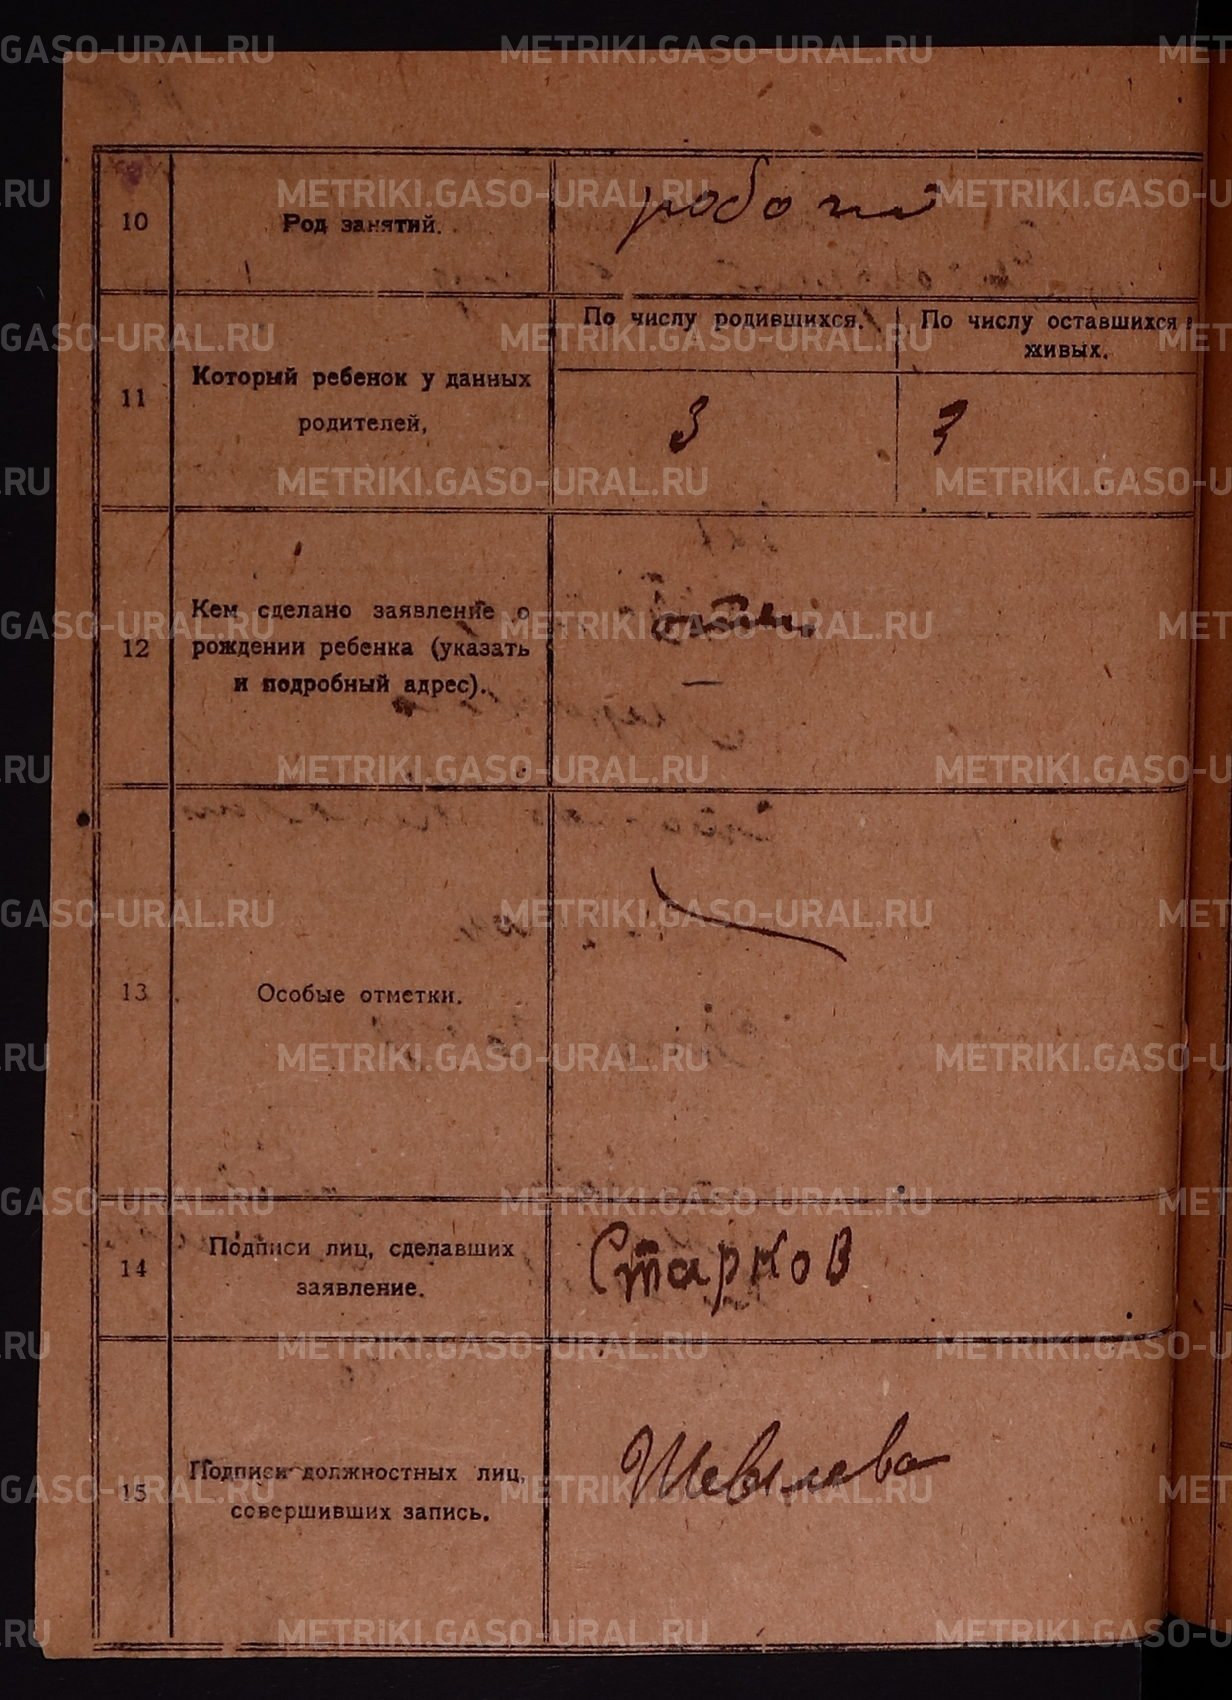 10
Род занятий.
робочий
11
Который ребенок у данных
родителей,
По числу родившихся.
По числу оставшихся в
живых.
3
3
12
Кем сделано заявление о
рождении ребенка (указать
и подробный адрес).
—
13
Особые отметки.
14
Подписи лиц, сделавших
заявление.
Старков
15
Подписи должностных лиц,
совершивших запись.
METRIKI.GASO-URAL.RU